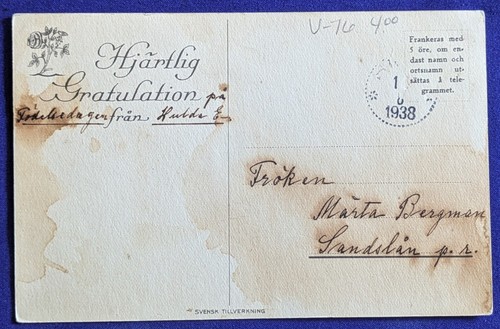 V-76 400
Hjärtlig
Gratulation på
Födelsedagen från Hulda E
Frankeras med
5 öre, om en-
dast namn och
ortsnamn ut-
sättas å tele-
grammet.
1
1938
Fröken
Märta Bergman
Sandslån p.r.
SVENSK TILLVERKNING